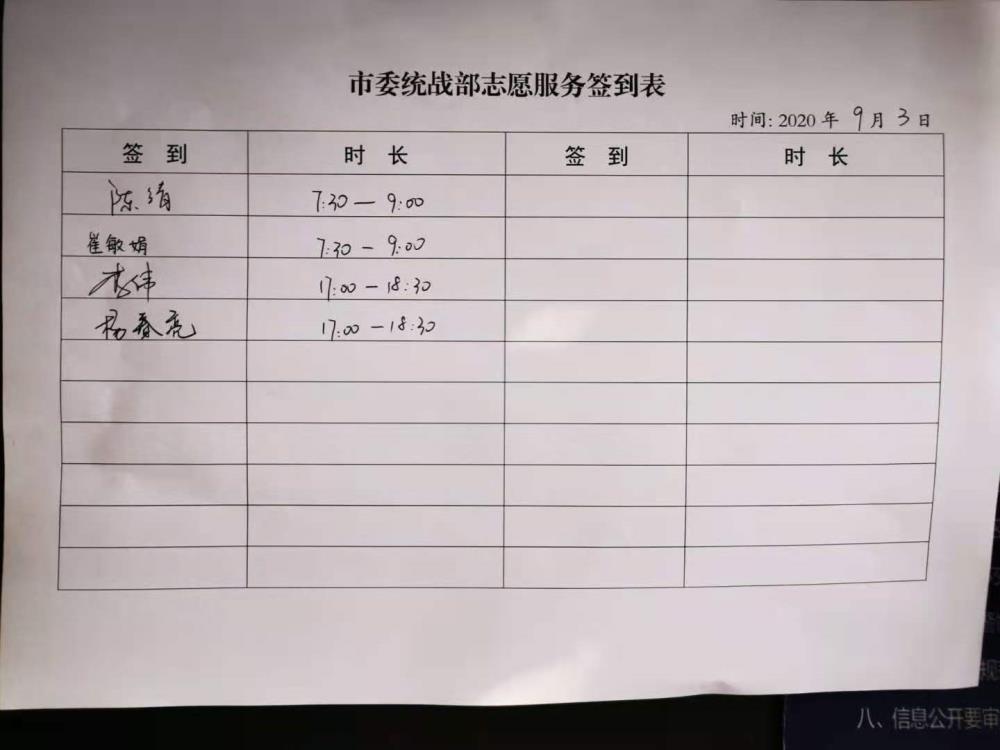 市委统战部志愿服务签到表
时间: 2020 年 9 月 3 日
签 到 时 长 签 到 时 长
陈绩 7:30 — 9:00
崔敏娟 7:30 - 9:00
李伟 17:00 - 18:30
杨春亮 17:00 - 18:30
八、信息公开要审